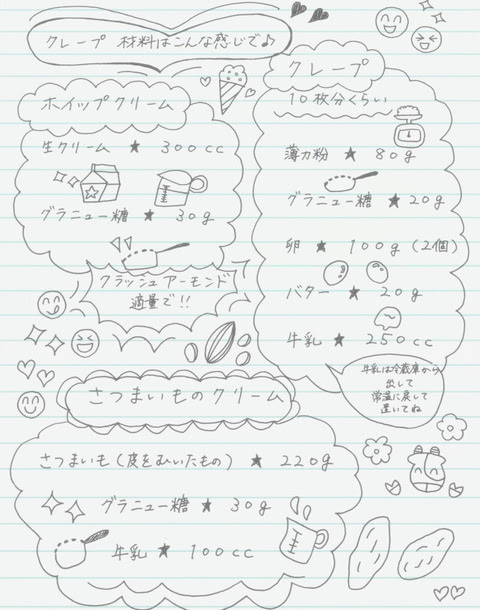 クレープ 材料はこんな感じで♪
ホイップクリーム
生クリーム ★ 300cc
グラニュー糖 ★ 30g
クラッシュアーモンド
適量で!!
クレープ
10枚分くらい
薄力粉 ★ 80g
グラニュー糖 ★ 20g
卵 ★ 100g(2個)
バター ★ 20g
牛乳 ★ 250cc
牛乳は冷蔵庫から
出して
常温に戻して
置いてね
さつまいものクリーム
さつまいも(皮をむいたもの) ★ 220g
グラニュー糖 ★ 30g
牛乳 ★ 100cc